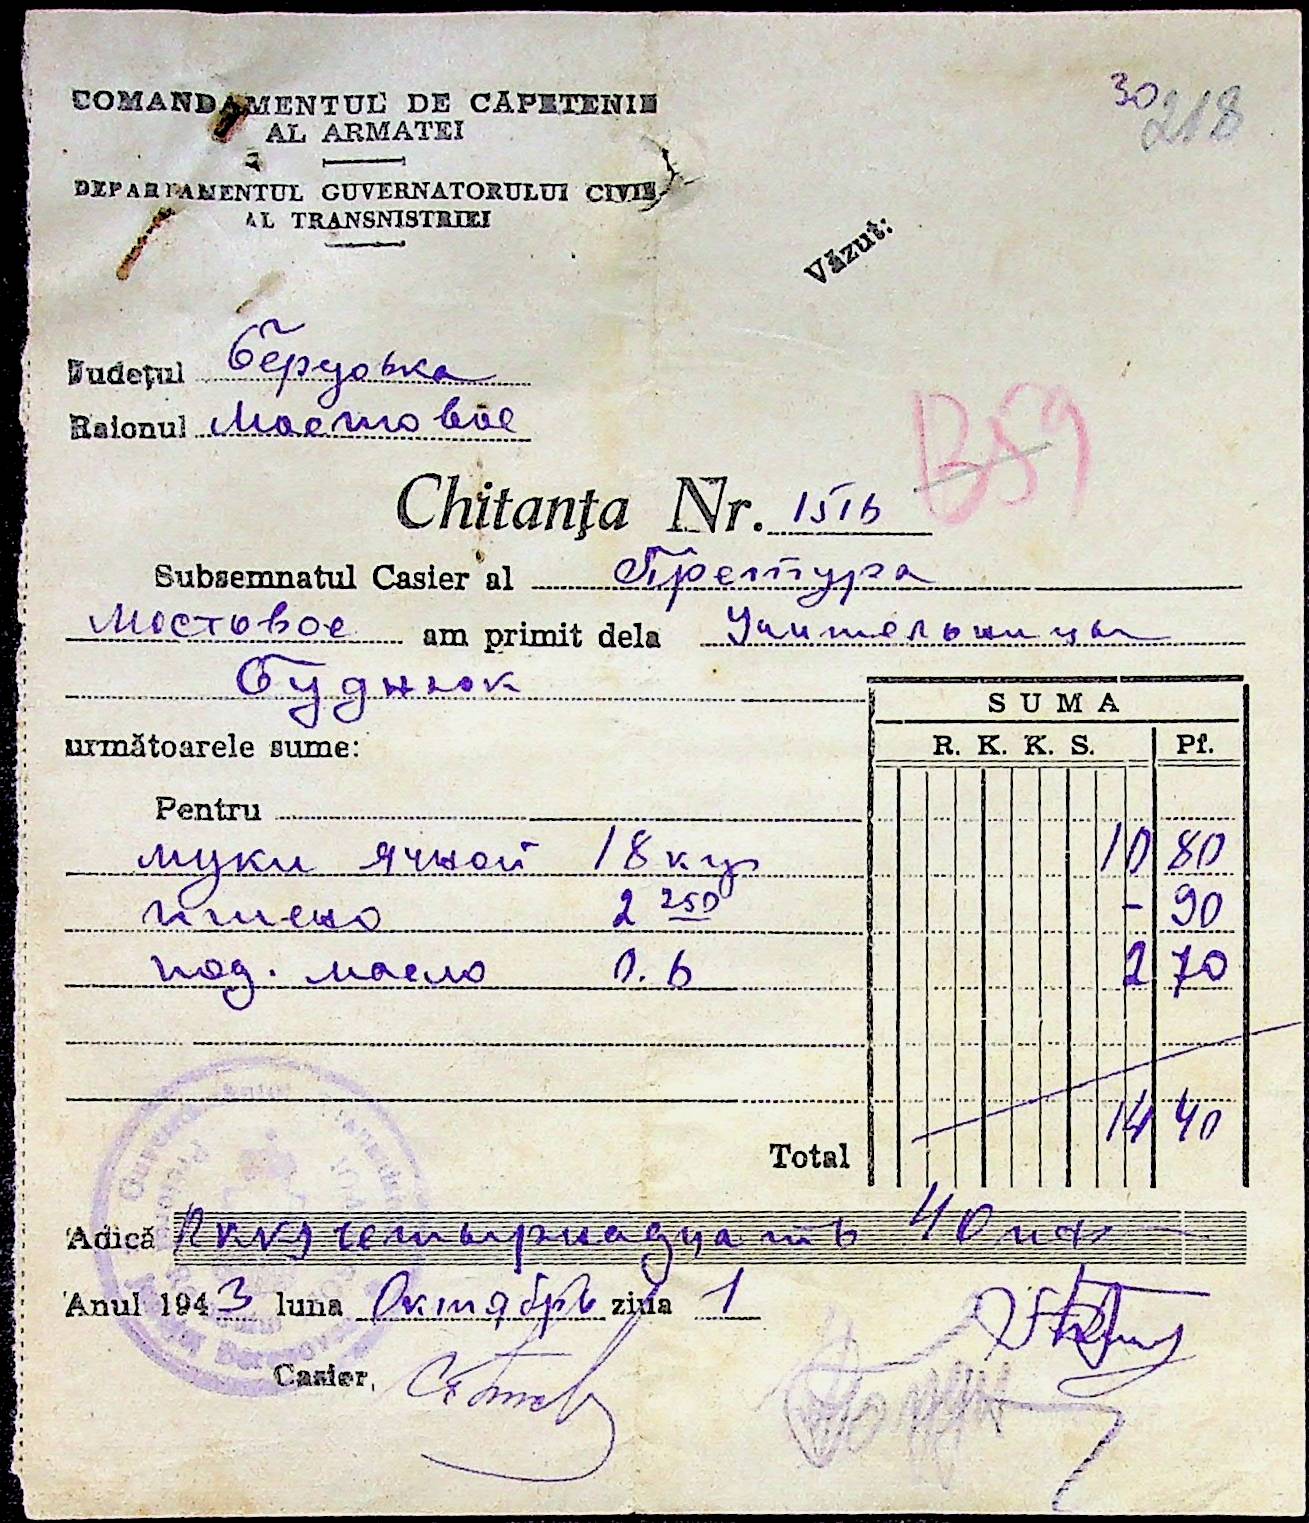 30
218
COMANDAMENTUL DE CĂPETENIE
AL ARMATEI
DEPARTAMENTUL GUVERNATORULUI CIVIL
AL TRANSNISTRIEI
Văzut:
Județul Берзовка
Raionul Мостовое
B59
Chitanța Nr. 1516
Subsemnatul Casier al Претура
Мостовое am primit dela Учительницы
Буднюк
SUMA
următoarele sume:
R. K. K. S. Pf.
Pentru
муки ячной 18 кгр 10 80
пшено 2 250 - 90
под. масло 0.6 2 70
Total 14 40
Adică Rккs четырнадцать 40 пф
Anul 1943 luna Октябрь ziua 1
Casier,